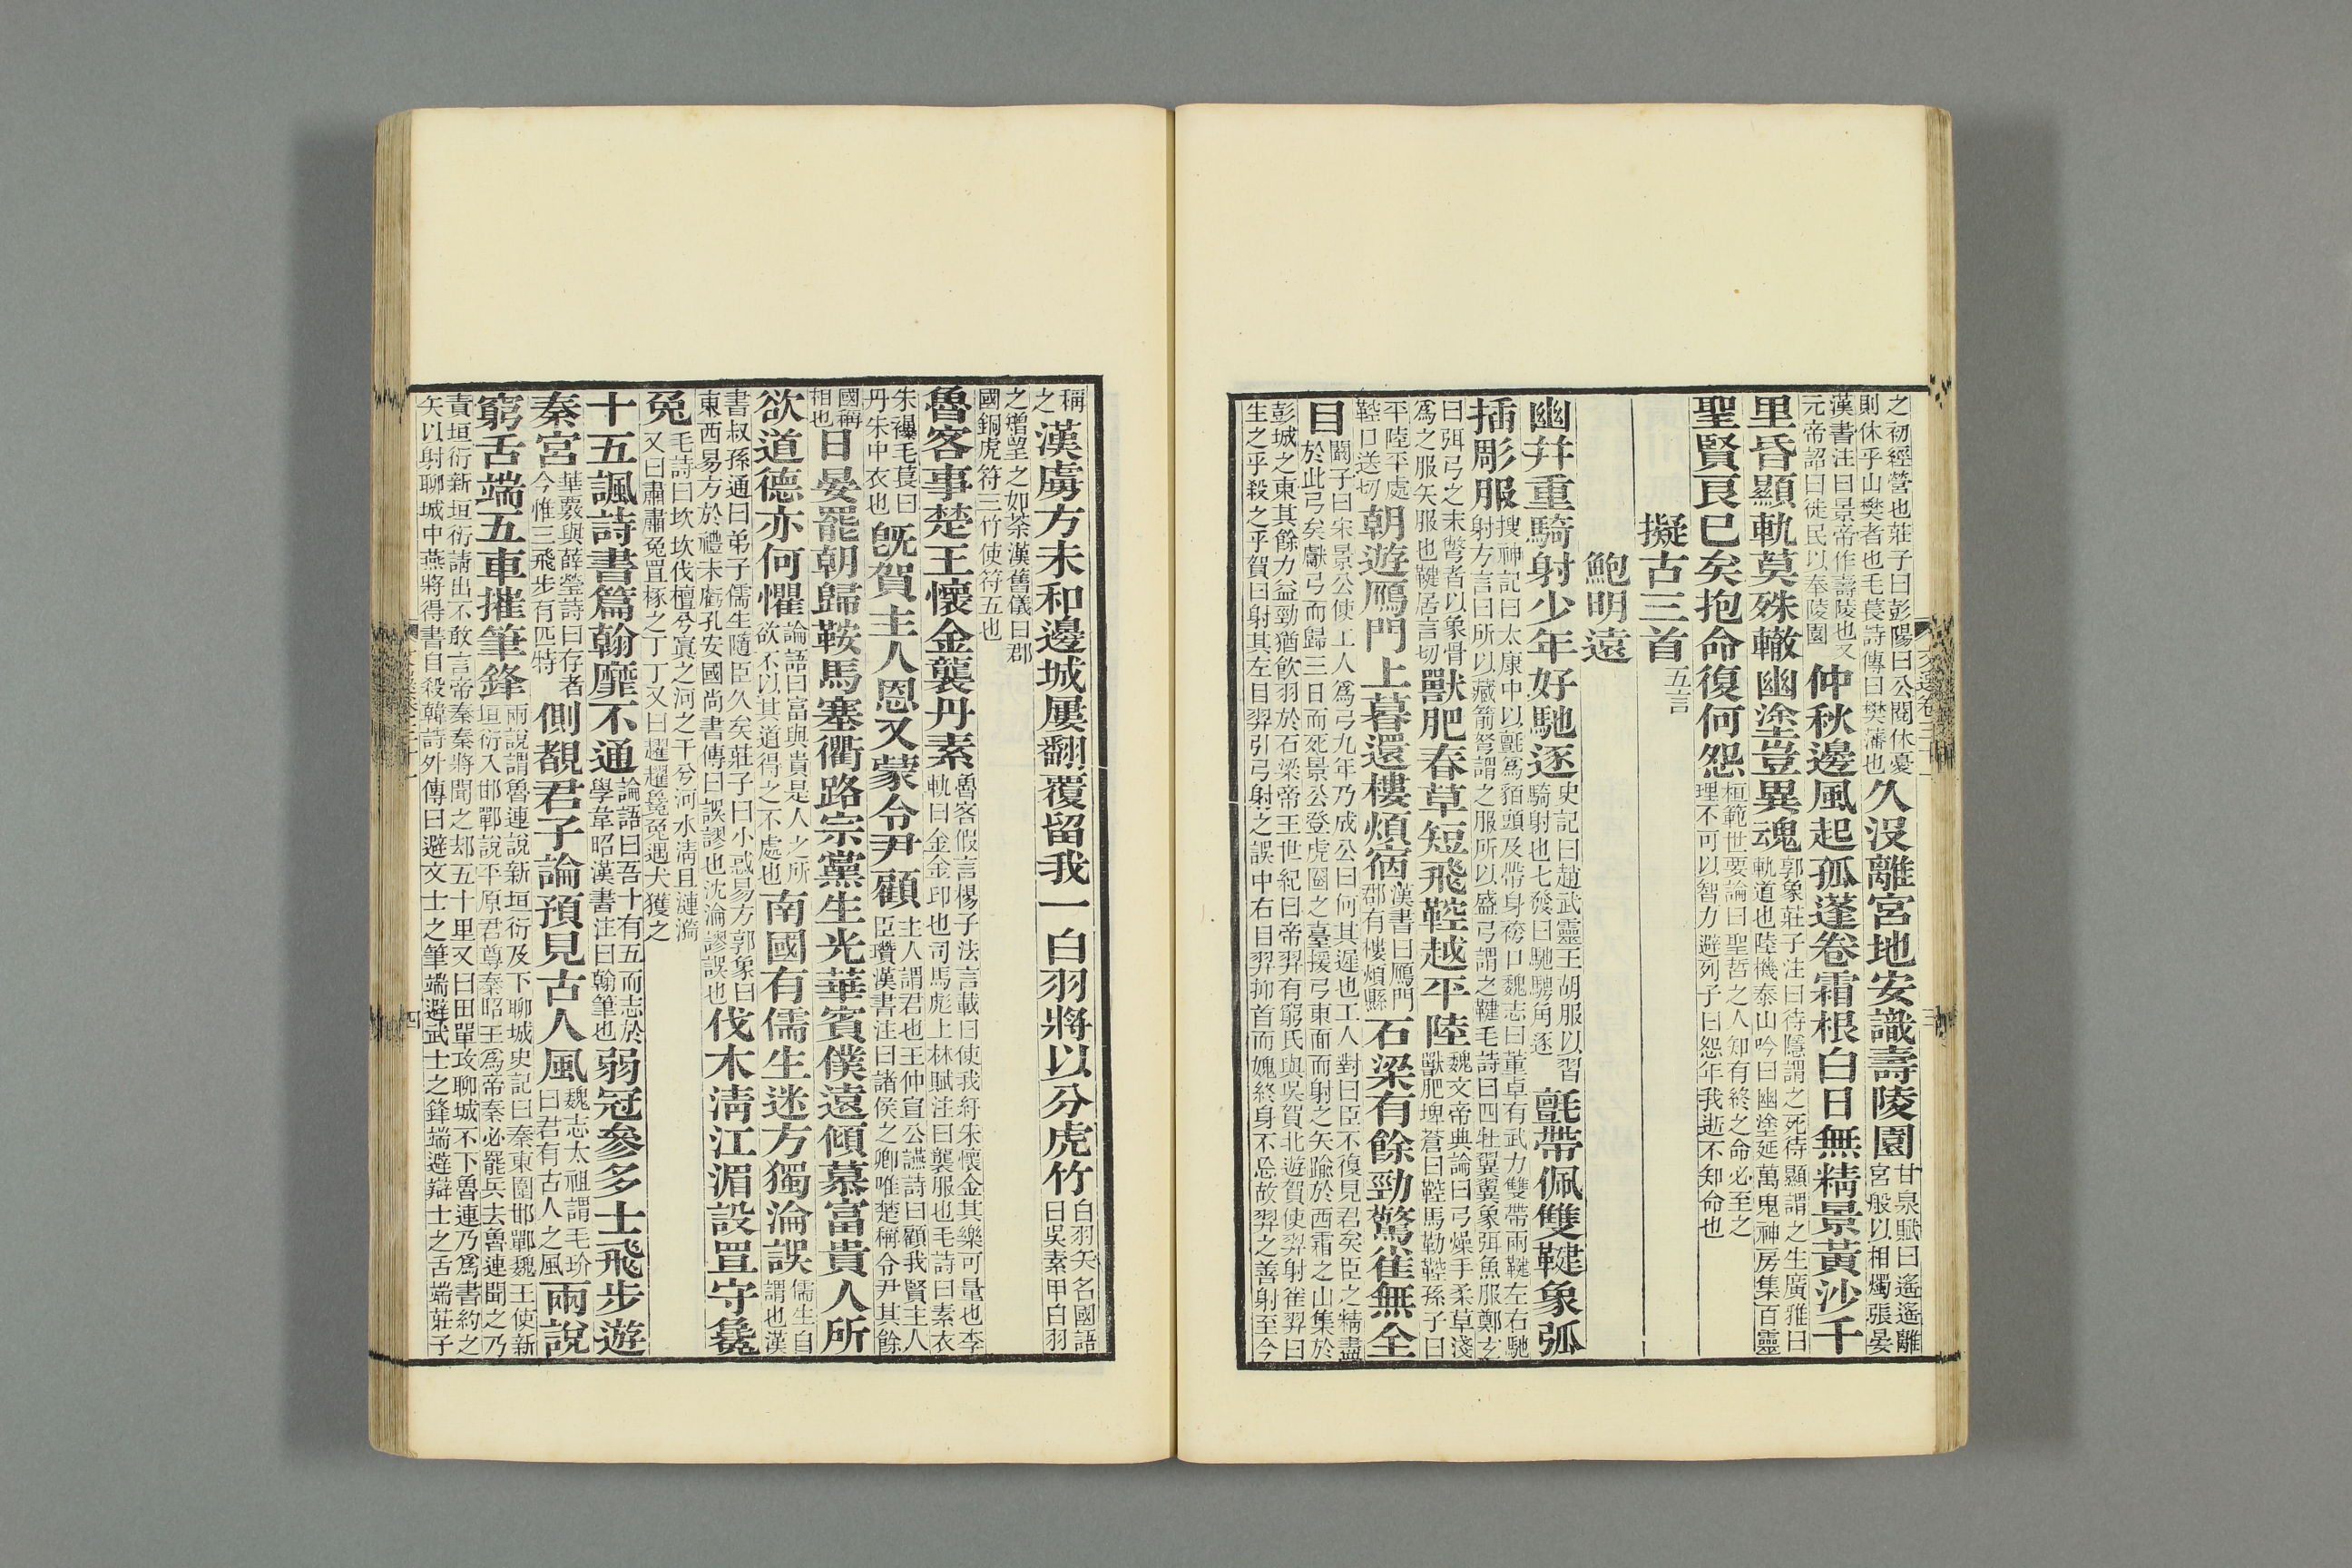 之初經營也莊子曰彭陽曰公閱休憂
則休乎山樊者也毛萇詩傳曰樊藩也
久没離宮地安識壽陵園
甘泉賦曰遙遙離
宮般以相燭張晏
漢書注曰景帝作壽陵也又
元帝詔曰徒民以奉陵園
仲秋邊風起孤蓬卷霜根白日無精景黃沙千
里昏顯軌莫殊轍幽塗豈異魂
郭象莊子注曰待隱謂之死待顯謂之生廣雅曰
軌道也陸機泰山吟曰幽塗延萬鬼神房集百靈
聖賢良已矣抱命復何怨
桓範世要論曰聖哲之人知有終之命必至之
理不可以智力避列子曰怨年我逝不知命也
擬古三首
五言
鮑明遠
幽并重騎射少年好馳逐
史記曰趙武靈王胡服以習
騎射也七發曰馳騁角逐
氈帶佩雙鞬象弧
插彫服
搜神記曰太康中以氈爲貊頭及帶身袴口魏志曰董卓有武力雙帶兩鞬左右馳
射方言曰所以藏箭弩謂之服所以盛弓謂之鞬毛詩曰四牡翼翼象弭魚服鄭玄
曰弭弓之末彆者以象骨
爲之服矢服也鞬居言切
獸肥春草短飛鞚越平陸
魏文帝典論曰弓燥手柔草淺
獸肥埤蒼曰鞚馬勒鞚孫子曰
平陸平處
鞚口送切
朝遊鴈門上暮還樓煩宿
漢書曰鴈門
郡有樓煩縣
石梁有餘勁驚雀無全
目
闞子曰宋景公使工人爲弓九年乃成公曰何其遲也工人對曰臣不復見君矣臣之精盡
於此弓矣獻弓而歸三日而死景公登虎圈之臺援弓東面而射之矢踰於西霜之山集於
彭城之東其餘力益勁猶飲羽於石梁帝王世紀曰帝羿有窮氏與吳賀北遊賀使羿射雀羿曰
生之乎殺之乎賀曰射其左目羿引弓射之誤中右目羿抑首而媿終身不忘故羿之善射至今
稱
之
漢虜方未和邊城屢翻覆留我一白羽將以分虎竹
白羽矢名國語
曰吳素甲白羽
之矰望之如荼漢舊儀曰郡
國銅虎符三竹使符五也
魯客事楚王懷金襲丹素
魯客假言楊子法言載曰使我紆朱懷金其樂可量也李
軌曰金金印也司馬彪上林賦注曰襲服也毛詩曰素衣
朱襮毛萇曰
丹朱中衣也
旣賀主人恩又蒙令尹顧
主人謂君也王仲宣公讌詩曰顧我賢主人
臣瓚漢書注曰諸侯之卿唯楚稱令尹其餘
國稱
相也
日晏罷朝歸鞍馬塞衢路宗黨生光華賓僕遠傾慕富貴人所
欲道德亦何懼
論語曰富與貴是人之所
欲不以其道得之不處也
南國有儒生迷方獨淪誤
儒生自
謂也漢
書叔孫通曰弟子儒生隨臣久矣莊子曰小惑易方郭象曰
東西易方於禮未虧孔安國尚書傳曰誤謬也沈淪謬誤也
伐木清江湄設罝守毚
兔
毛詩曰坎坎伐檀兮寘之河之干兮河水清且漣漪
又曰肅肅兔罝椓之丁丁又曰趯趯毚兔遇犬獲之
十五諷詩書篇翰靡不通
論語曰吾十有五而志於
學韋昭漢書注曰翰筆也
弱冠參多士飛步遊
秦宮
華覈與薛瑩詩曰存者
今惟三飛步有匹特
側覩君子論預見古人風
魏志太祖謂毛玠
曰君有古人之風
兩說
窮舌端五車摧筆鋒
兩說謂魯連說新垣衍及下聊城史記曰秦東圍邯鄲魏王使新
垣衍入邯鄲說平原君尊秦昭王爲帝秦必罷兵去魯連聞之乃
責垣衍新垣衍請出不敢言帝秦秦將聞之却五十里又曰田單攻聊城不下魯連乃爲書約之
矢以射聊城中燕將得書自殺韓詩外傳曰避文士之筆端避武士之鋒端避辯士之舌端莊子
四